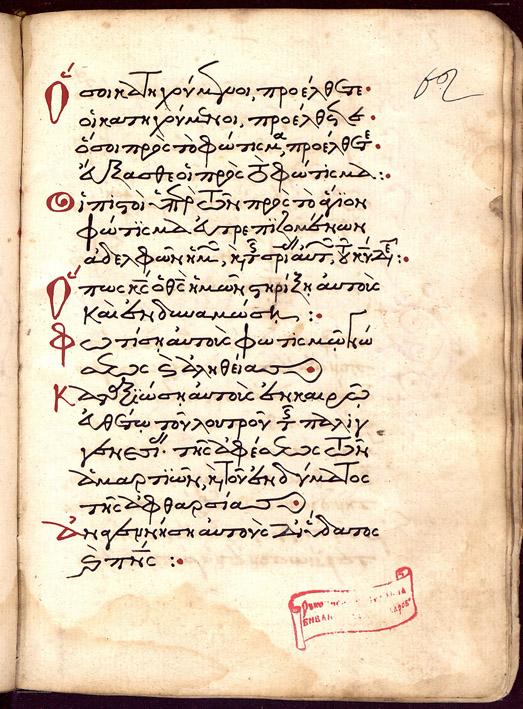 Ὅσοι κατηχούμενοι, προέλθετε·
οἱ κατηχούμενοι, προέλθετε·
ὅσοι πρὸς τὸ φώτισμα, προέλθετε·
εὔξασθε οἱ πρὸς τὸ φώτισμα :·
Οἱ πιστοὶ ὑπὲρ τῶν πρὸς τὸ ἅγιον
φώτισμα εὐτρεπιζομένων
ἀδελφῶν ἡμῶν, καὶ τῆς σωτηρίας αὐτῶν, τοῦ Κυρίου δεηθῶμεν :·
Ὅπως Κύριος ὁ Θεὸς ἡμῶν στηρίξῃ αὐτοὺς
καὶ ἐνδυναμώσῃ :·
Φωτίσῃ αὐτοὺς φωτισμῷ γνώ
σεως καὶ ἀληθείας
Καταξιώσῃ αὐτοὺς ἐν καιρῷ
εὐθέτῳ τοῦ λουτροῦ τῆς παλιγ
γενεσίας· τῆς ἀφέσεως τῶν
ἁμαρτιῶν, καὶ τοῦ ἐνδύματος
τῆς ἀφθαρσίας
Ἀναγεννήσῃ αὐτοὺς δι' ὕδατος
καὶ πνεύματος :·